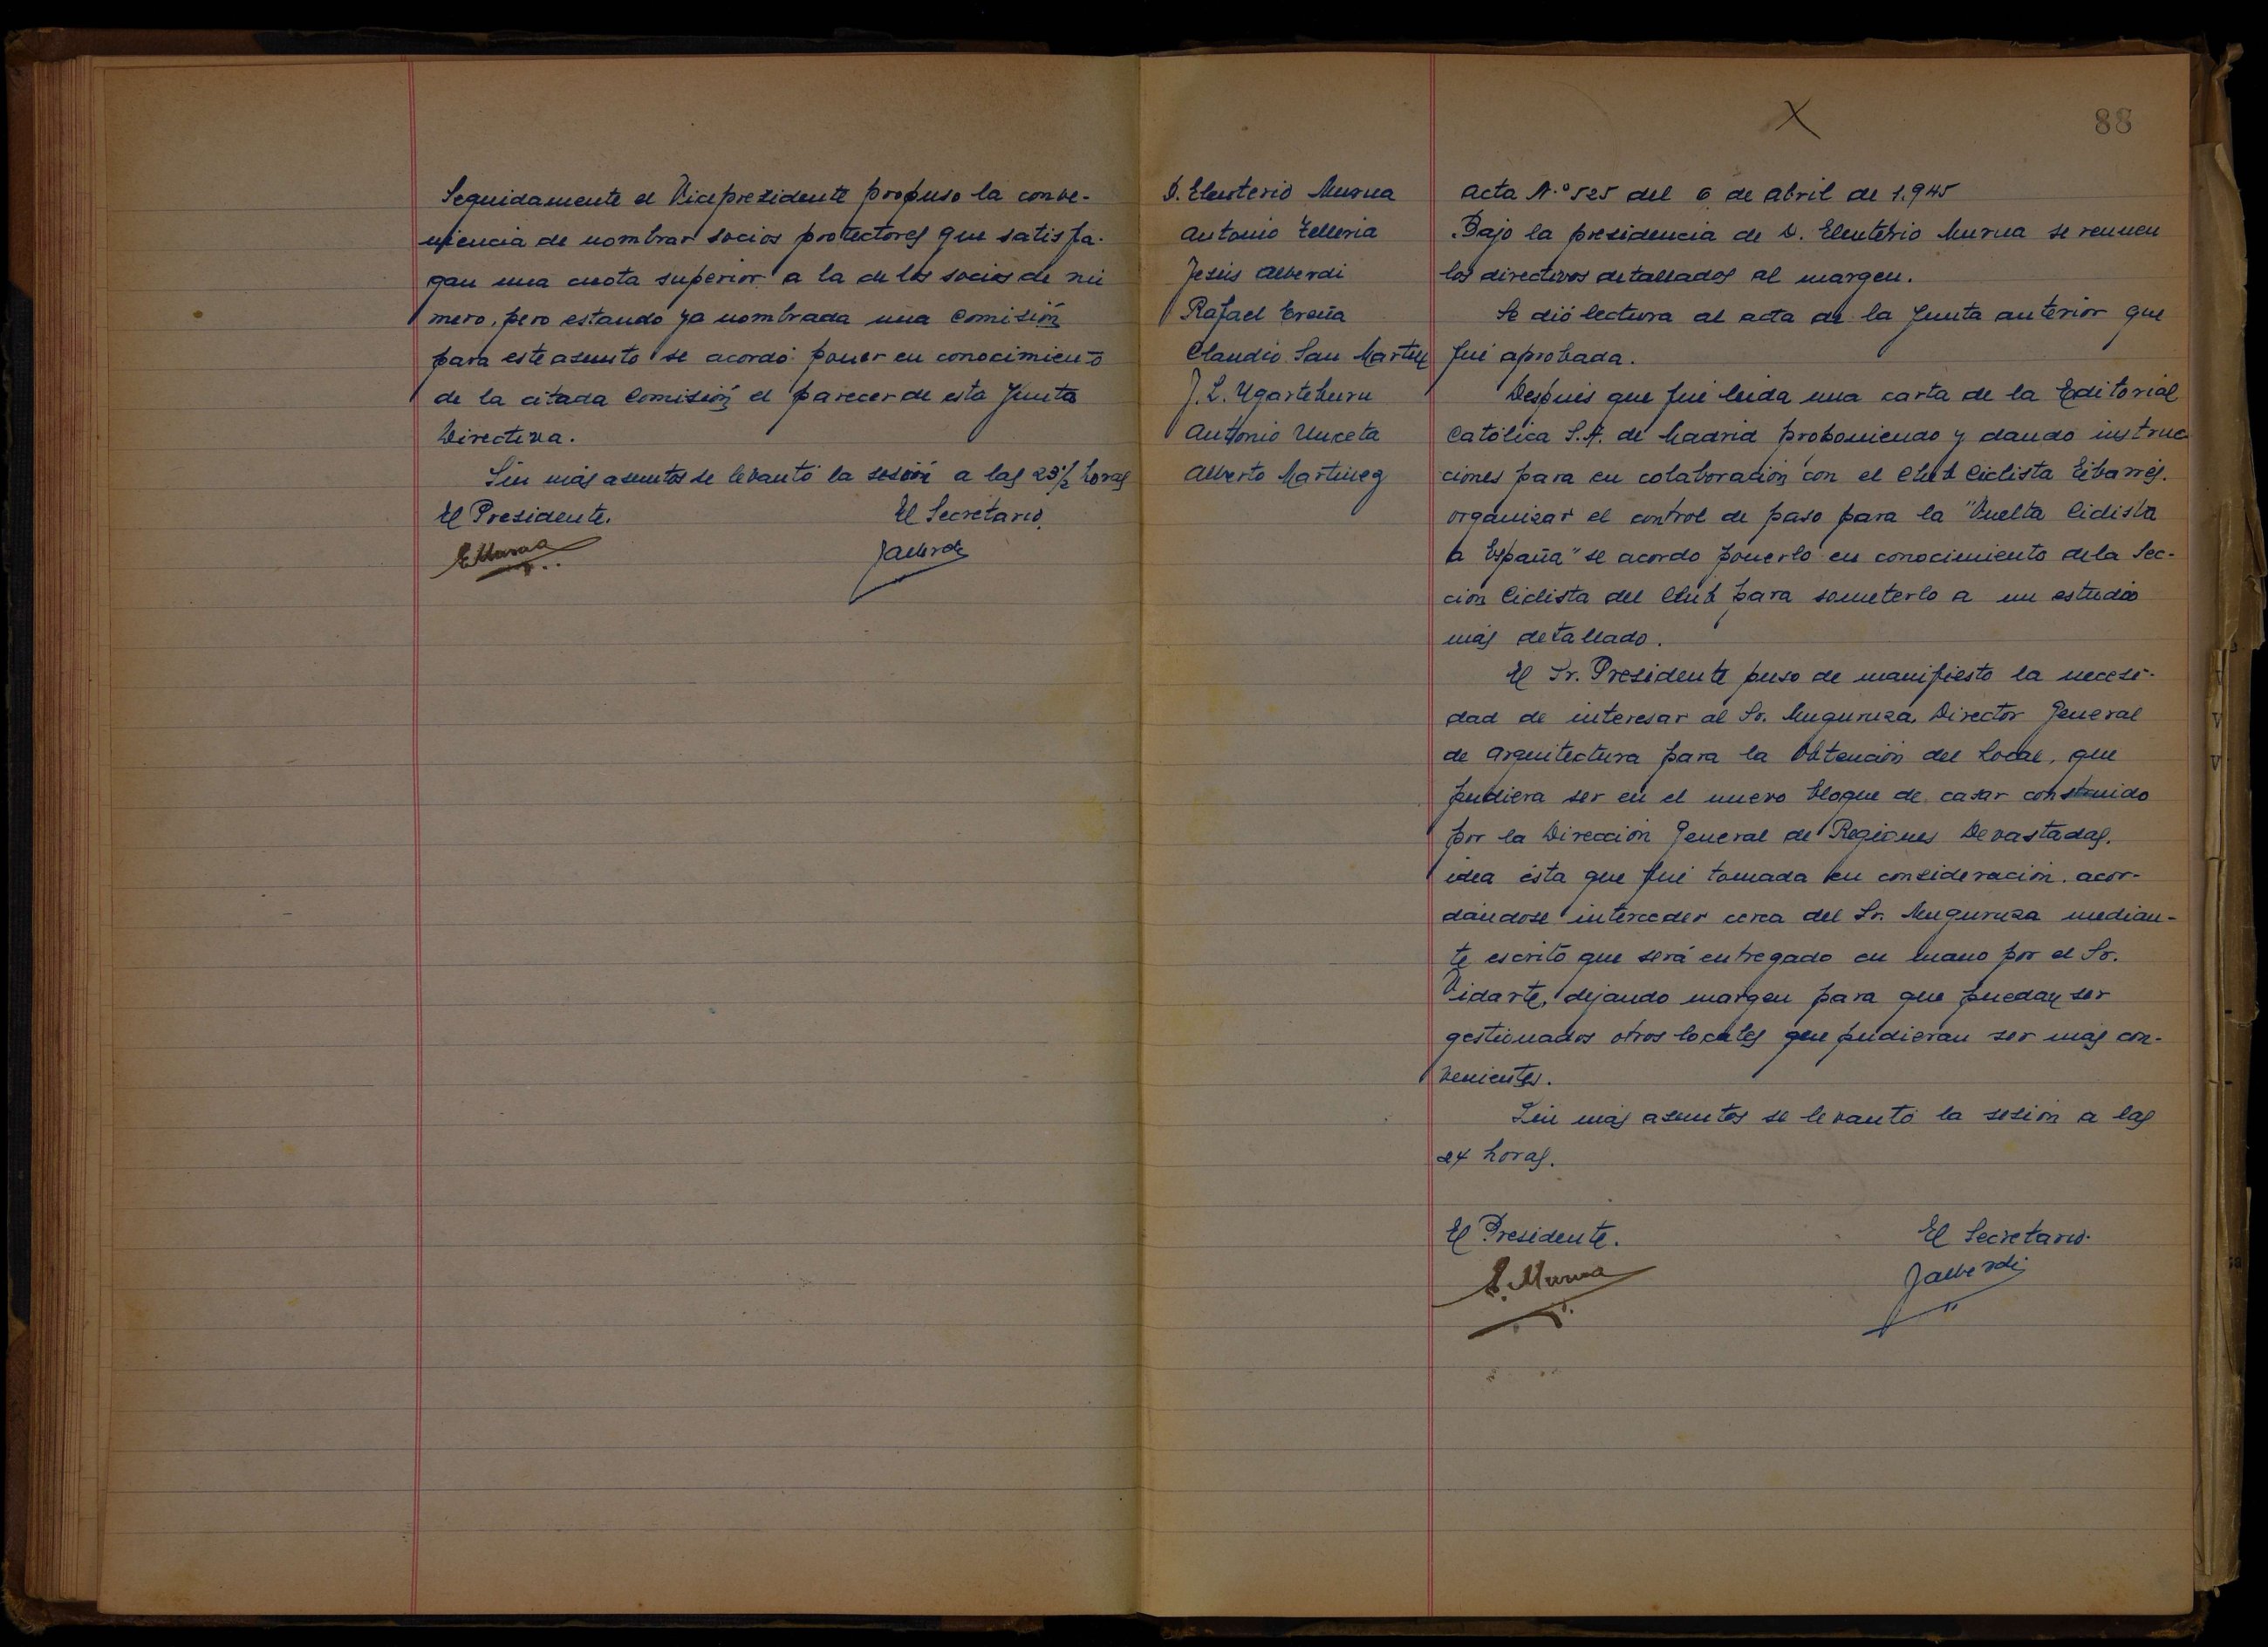 Seguidamente el Vicepresidente propuso la conve-
niencia de nombrar socios protectores que satisfa-
gan una cuota superior a la de los socios de nú
mero, pero estando ya nombrada una Comisión
para este asunto se acordó poner en conocimiento
de la citada Comisión el parecer de esta Junta
Directiva.
Sin más asuntos se levantó la sesión a las 23½ horas
El Presidente. El Secretario.
E Murua JAlberdi
88
D. Eleuterio Murua
Antonio Telleria
Jesús Alberdi
Rafael Ereña
Claudio San Martin
J. L. Ugarteburu
Antonio Unceta
Alberto Martinez
Acta N.º 525 del 6 de Abril de 1.945
Bajo la presidencia de D. Eleuterio Murua se reunen
los directivos detallados al margen.
Se dió lectura al acta de la Junta anterior que
fué aprobada.
Después que fué leida una carta de la Editorial
Católica S.A. de Madrid proponiendo y dando instruc
ciones para en colaboración con el Club Ciclista Eibarrés.
organizar el control de paso para la "Vuelta Ciclista
a España" se acordo ponerlo en conocimiento de la Sec-
ción Ciclista del Club para someterlo a un estudio
más detallado.
El Sr. Presidente puso de manifiesto la necesi-
dad de interesar al Sr. Muguruza, Director General
de Arquitectura para la Obtención del Local, que
pudiera ser en el nuevo bloque de casas construido
por la Dirección General de Regiones Devastadas.
idea ésta que fué tomada en consideración. acor-
dándose interceder cerca del Sr. Muguruza median-
te escrito que será entregado en mano por el Sr.
Vidarte, dejando margen para que puedan ser
gestionados otros locales que pudieran ser más con-
venientes.
Sin más asuntos se levantó la sesión a las
24 horas.
El Presidente. El Secretario.
E. Murua JAlberdi